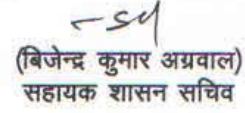 (बिजेन्द्र कुमार अग्रवाल)
सहायक शासन सचिव